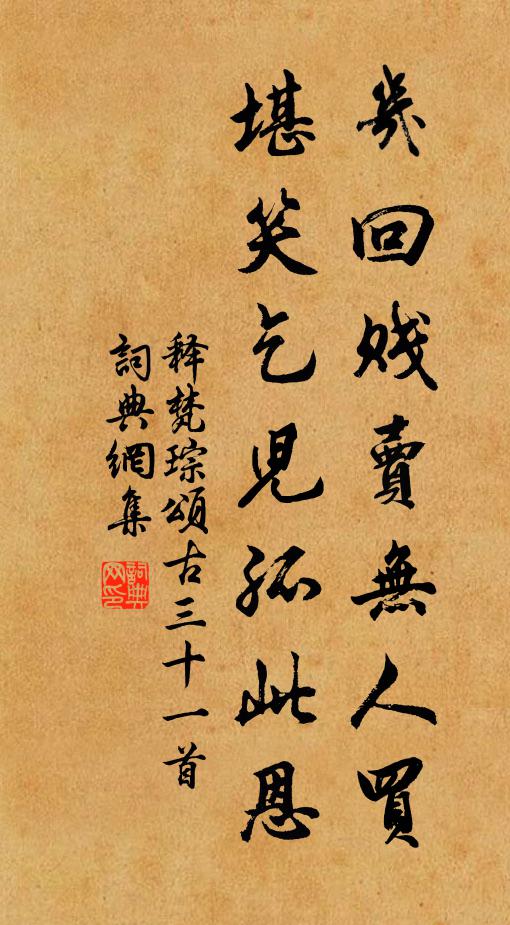 幾回賤賣無人買
堪笑乞児孤此恩
釋梵琮頌古三十一首
詞典網集
詞典網印